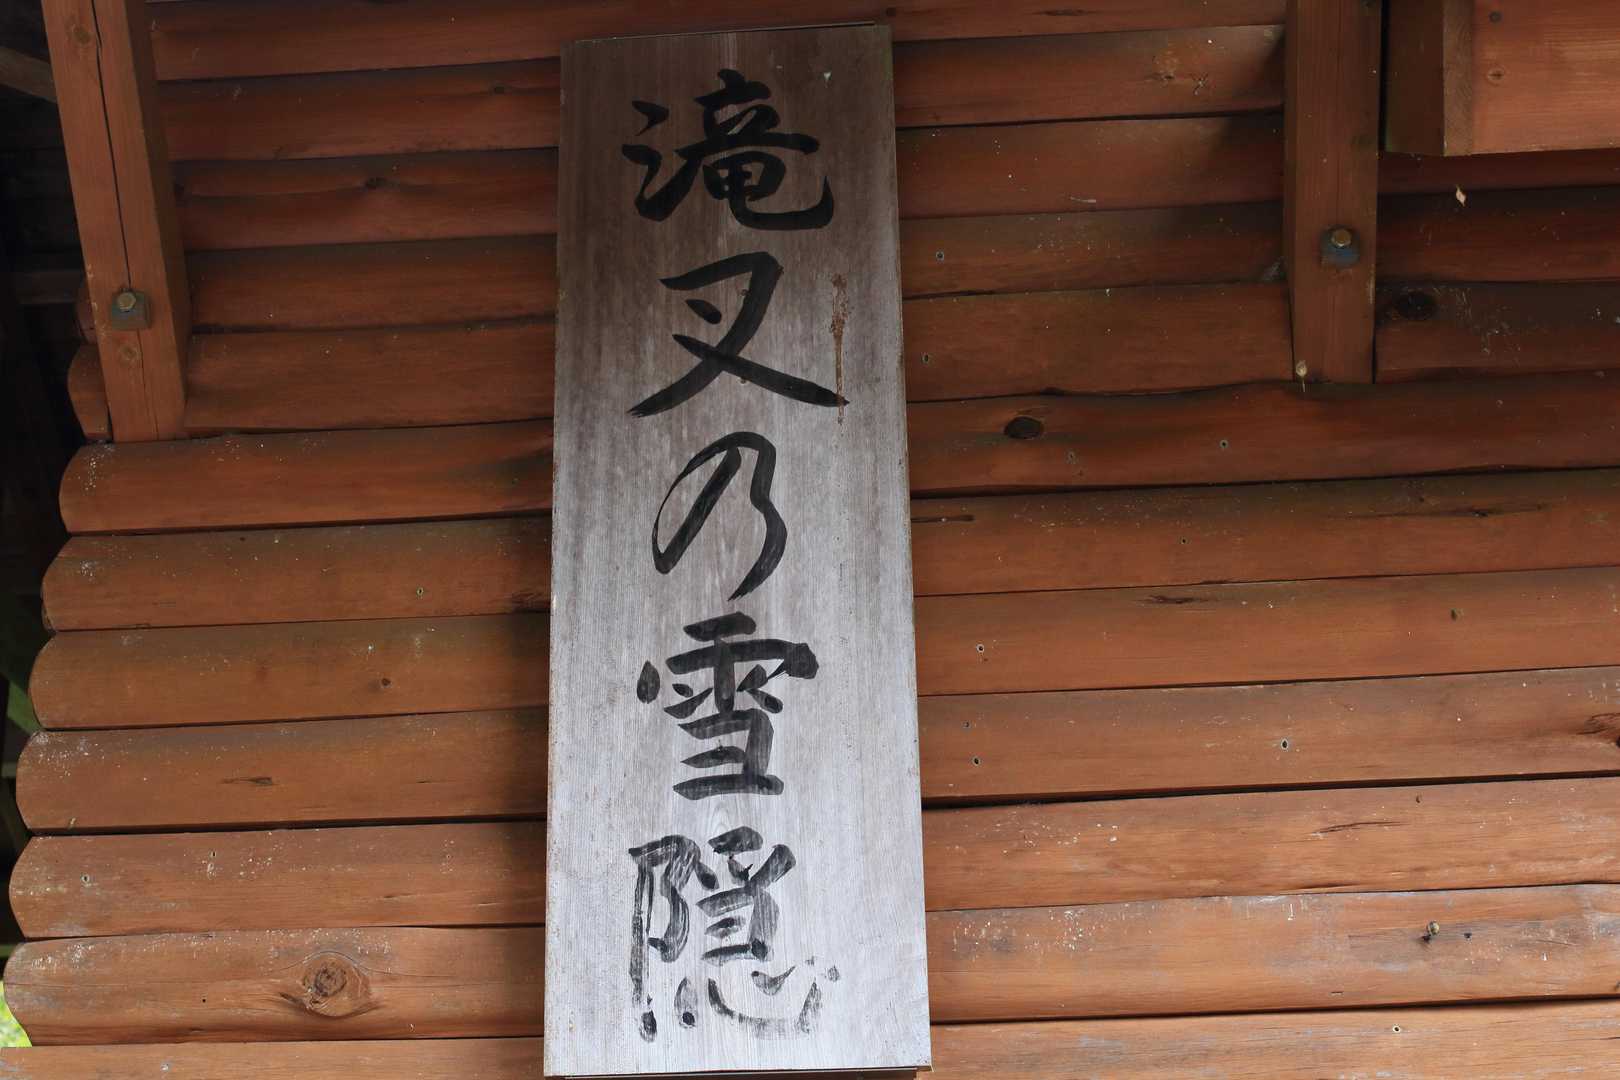 滝又乃雪隠